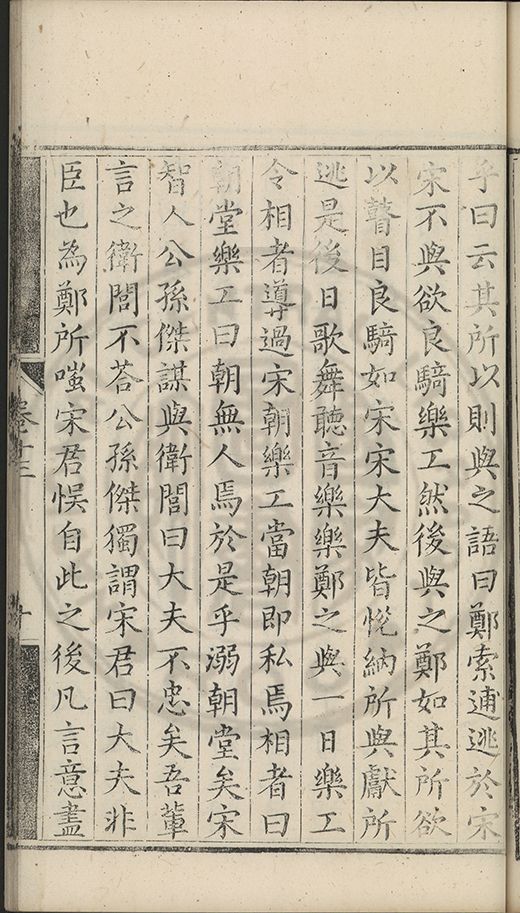 乎曰云其所以則與之語曰鄭索逋逃於宋
宋不與欲良騎樂工然後與之鄭如其所欲
以瞽目良騎如宋宋大夫皆悅納所與獻所
逃是後日歌舞聽音樂樂鄭之與一日樂工
令相者導過宋朝樂工當朝即私焉相者曰
朝堂樂工曰朝無人焉於是乎溺朝堂矣宋
智人公孫傑謀與衛閭曰大夫不忠矣吾輩
言之衛閭不荅公孫傑獨謂宋君曰大夫非
臣也為鄭所嗤宋君悞自此之後凡言意盡
卷十三